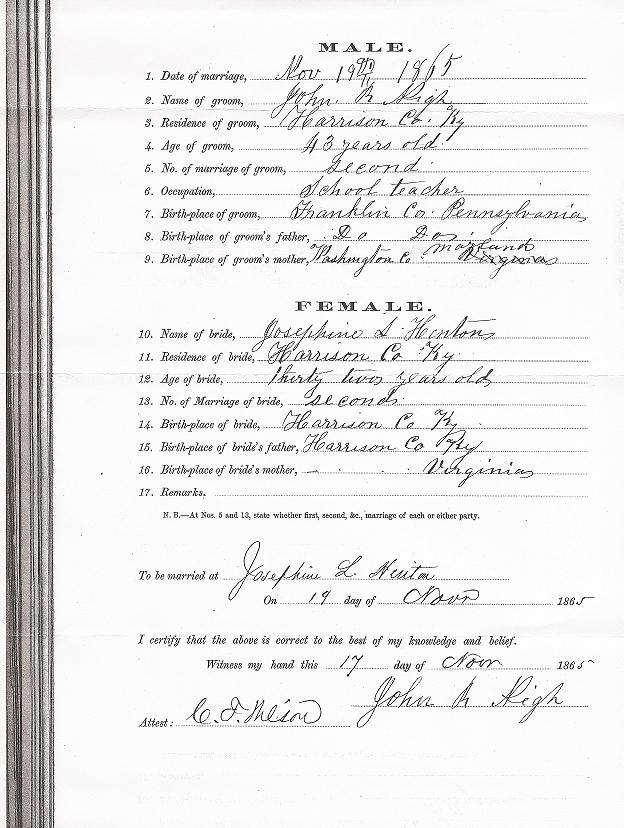 MALE.
1. Date of marriage, Nov 19th 1865
2. Name of groom, John R High
3. Residence of groom, Harrison Co. Ky
4. Age of groom, 43 years old
5. No. of marriage of groom, second
6. Occupation, School teacher
7. Birth-place of groom, Franklin Co. Pennsylvania
8. Birth-place of groom's father, Do Do
9. Birth-place of groom's mother, Washington Co. Maryland Virginia
FEMALE.
10. Name of bride, Josephine L. Henton
11. Residence of bride, Harrison Co Ky
12. Age of bride, thirty two years old
13. No. of Marriage of bride, second
14. Birth-place of bride, Harrison Co Ky
15. Birth-place of bride's father, Harrison Co Ky
16. Birth-place of bride's mother, Virginia
17. Remarks.
N. B.—At Nos. 5 and 13, state whether first, second, &c., marriage of each or either party.
To be married at Josephine L.
On 19 day of Novr 1865
I certify that the above is correct to the best of my knowledge and belief.
Witness my hand this 17 day of Novr 1865
John R High
Attest: C. F. Wilson